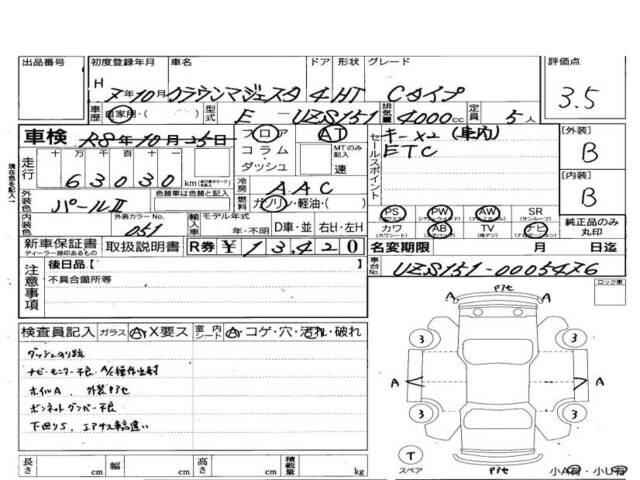 出品番号 初度登録年月 車名 ドア 形状 グレード 評価点
H 7年10月 クラウンマジェスタ 4HT Cタイプ 3.5
車歴 自家用・( ) 型式 E-UZS151 排気量 4000cc 定員 5人
車検 R8年10月25日 フロア コラム・ダッシュ AT MTのみ記入 速
走行 十万 万 千 百 十 63030km
冷房 AAC
外装色 パールⅡ 色替車は色替と記入 燃料 ガソリン・軽油・( )
内装色 外装カラーNo. 051 輸入車 モデル年式 年・不明 D車・並 右H・左H
新車保証書 ディーラー捺印あるもの 取扱説明書 R券 ¥13,420
セールスポイント キー×2 (車内)
ETC
[外装] B
[内装] B
PS PW AW SR (サンルーフ) 純正品のみ丸印
カワ AB TV ナビ
名変期限 月 日迄
車台No. UZS151-0005476
注意事項 後日品【
不具合箇所等
ロック車
検査員記入 ガラス A・X要ス 室内シート A・コゲ・穴・汚れ・破れ
ナビ・モニター不良
ホイルA 外装アセ
ボンネットダンパー不良
下回りS
アセ
A A
3 3
A A
3 3
T
スペア アセ 小A有・小U有
長さ cm 幅 cm 高さ cm 積載量 kg
現在色を記入